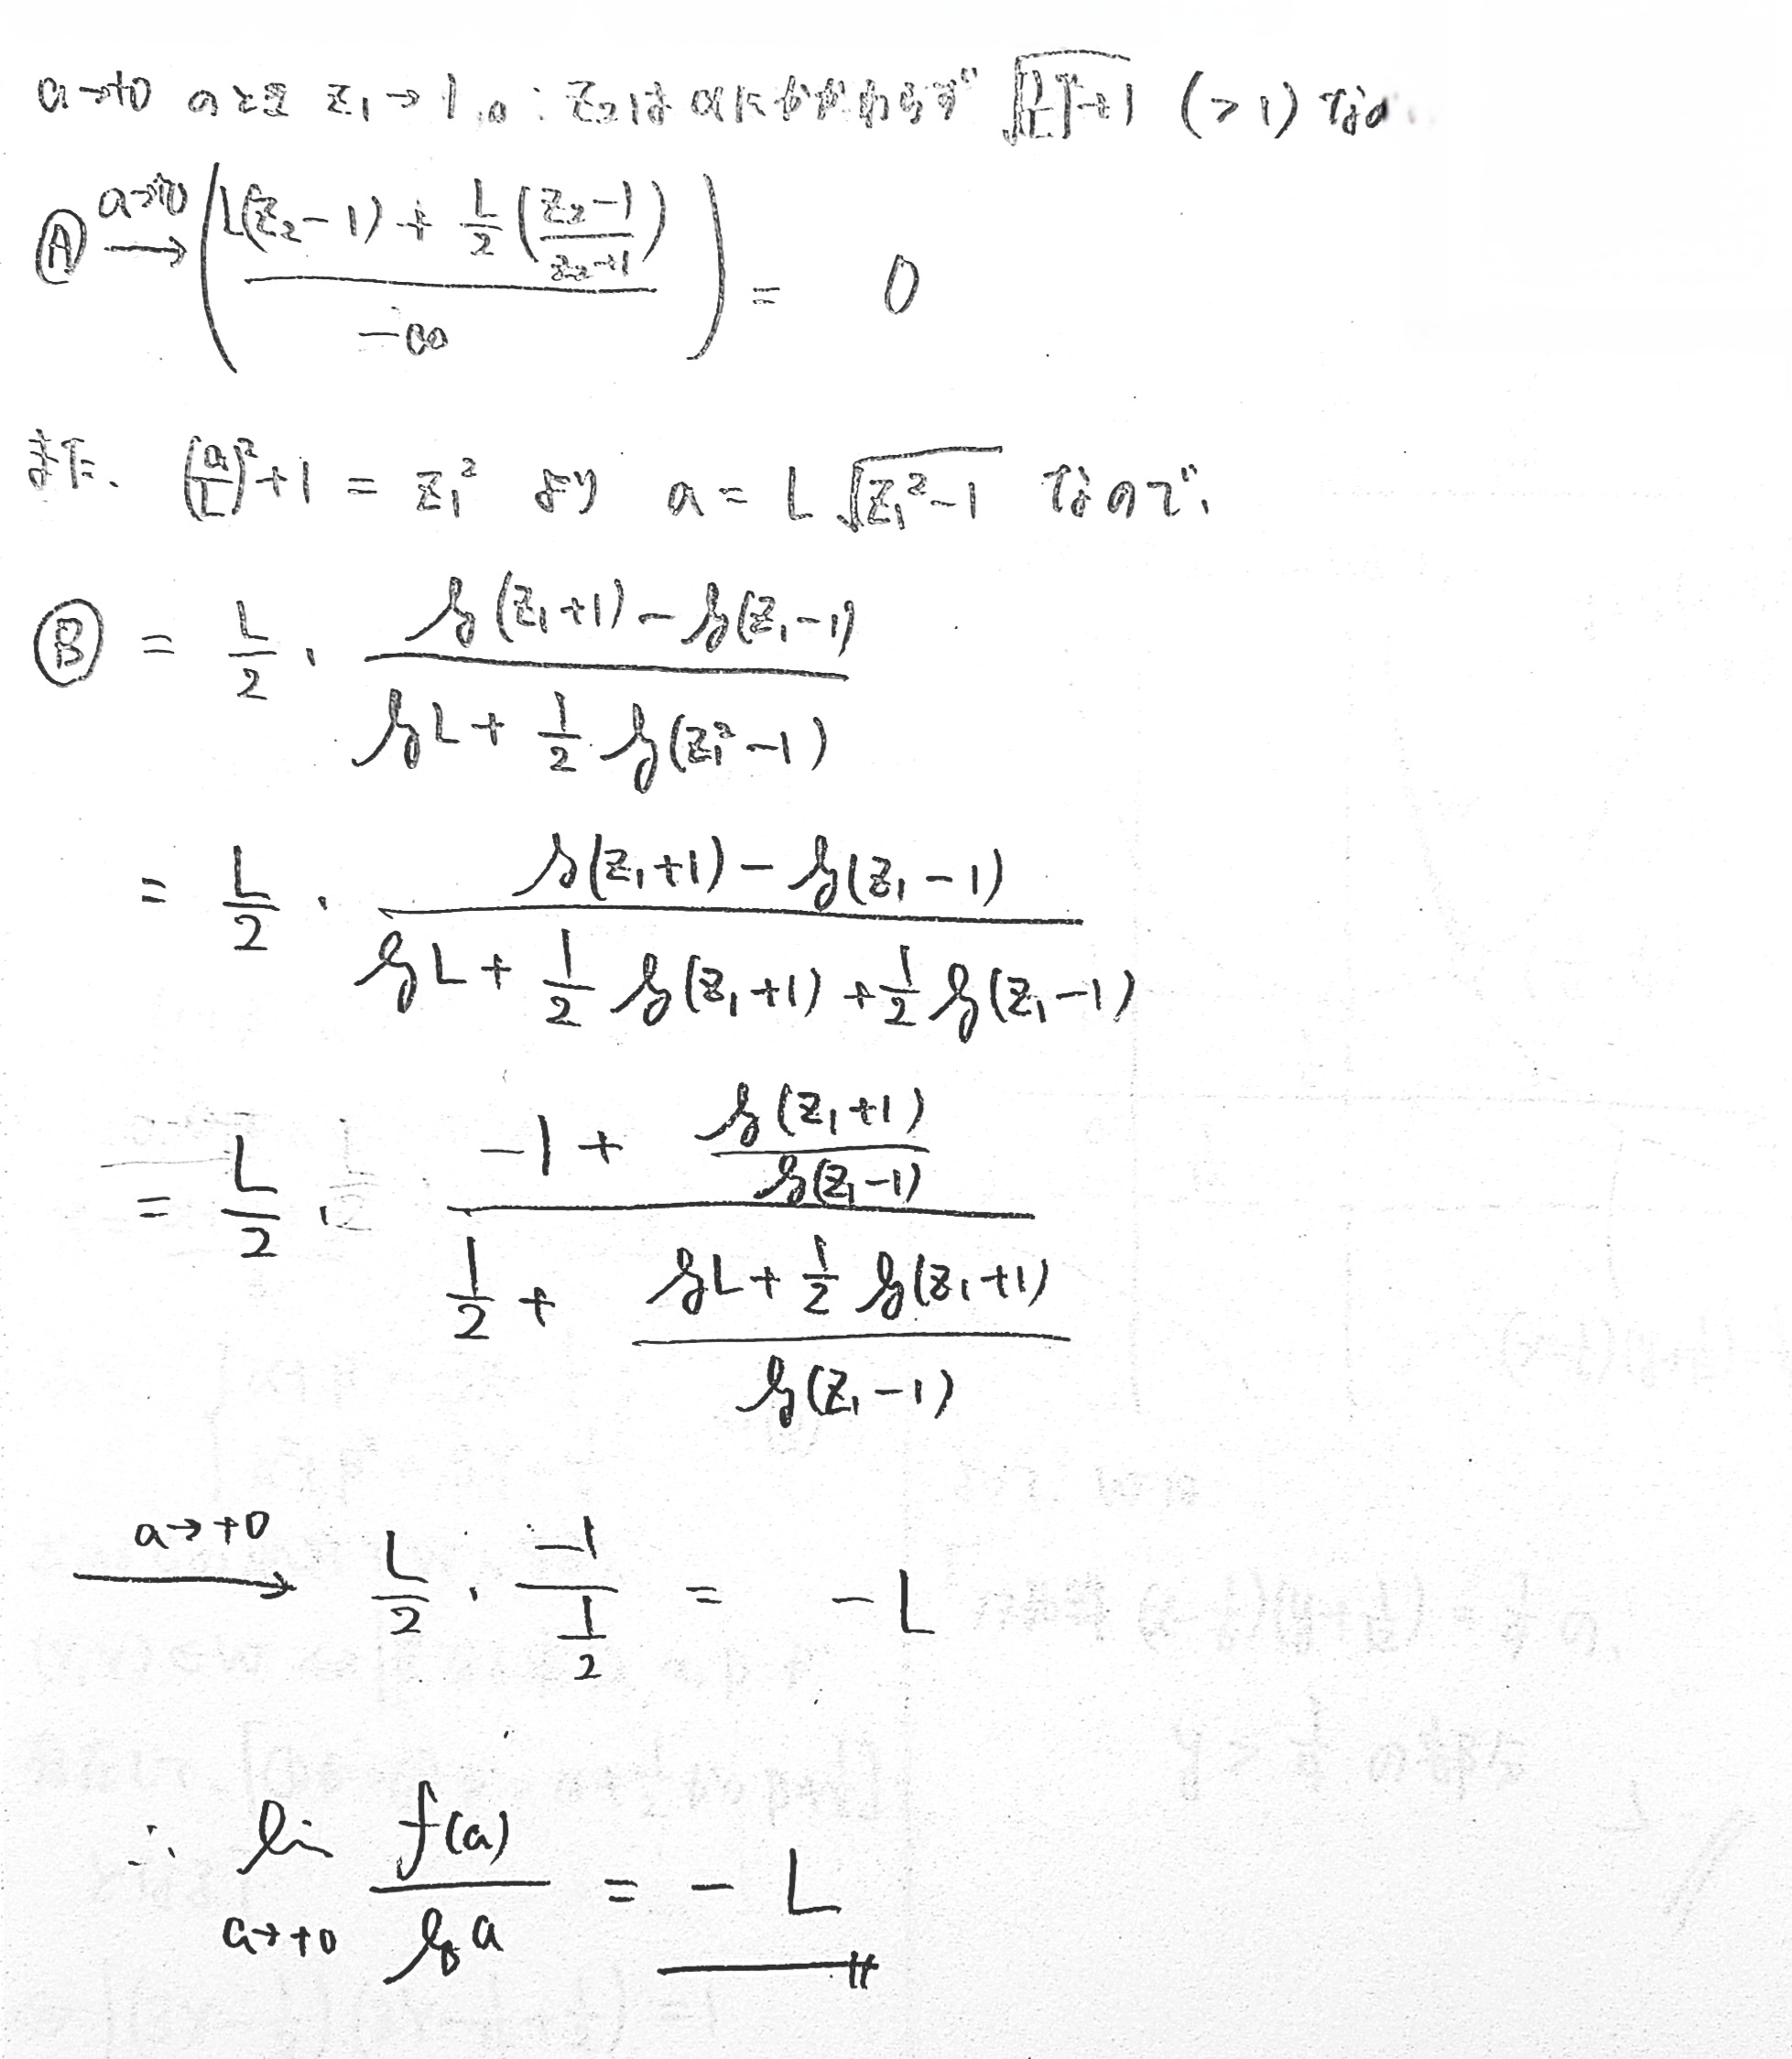 a→+0 のとき z₁→1。z₂はaにかかわらず √((1/L)²+1) (>1) なの
Ⓐ →(a→+0) ( (L(z₂-1) + L/2 ((z₂-1)/(z₂+1))) / -∞ ) = 0
また、 (a/L)²+1 = z₁² より a = L√(z₁²-1) なので、
Ⓑ = L/2 · (log(z₁+1) - log(z₁-1)) / (log L + 1/2 log(z₁²-1))
= L/2 · (log(z₁+1) - log(z₁-1)) / (log L + 1/2 log(z₁+1) + 1/2 log(z₁-1))
= L/2 · (-1 + log(z₁+1)/log(z₁-1)) / (1/2 + (log L + 1/2 log(z₁+1))/log(z₁-1))
→(a→+0) L/2 · (-1)/(1/2) = -L
∴ lim a→+0 f(a)/log a = -L